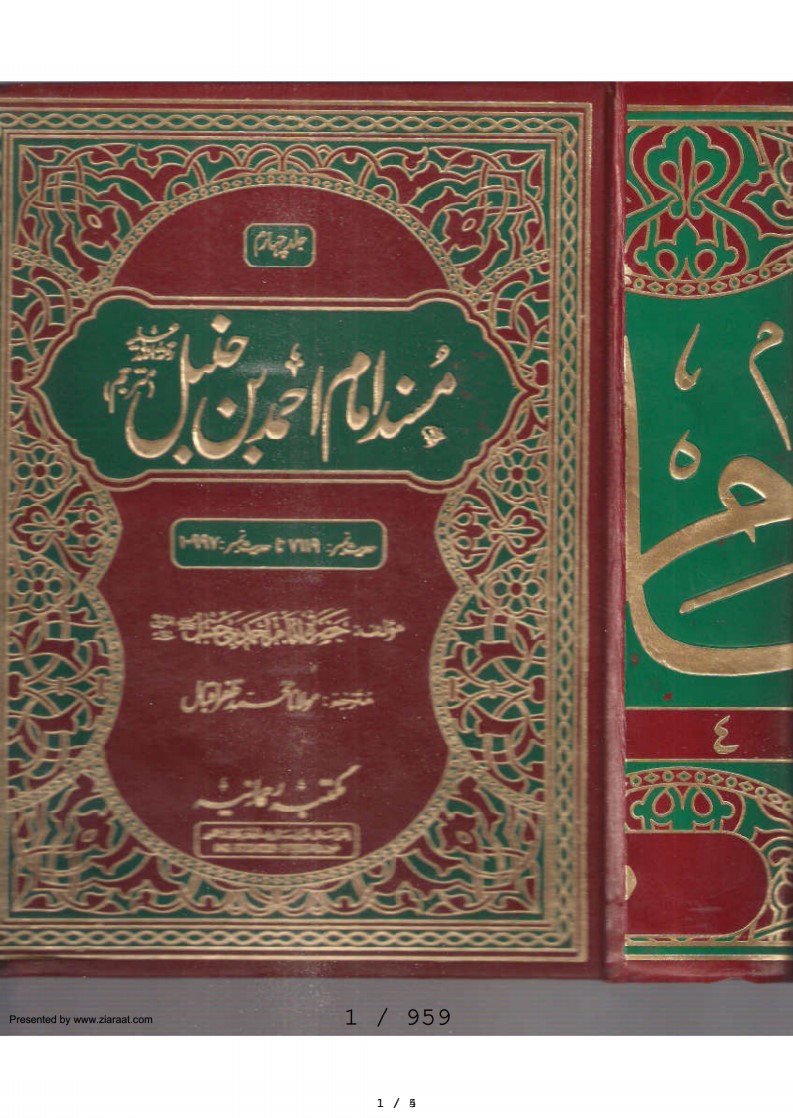 جلد چہارم
مُسند امام احمد بن حنبل
(مترجم)
حدیث نمبر: ۷۱۱۹ تا حدیث نمبر: ۱۰۹۹۷
مؤلف: حضرت امام احمد بن حنبل
مترجم: مولانا محمد ظفر اقبال
مکتبہ رحمانیہ
٤
Presented by www.ziaraat.com
1 / 959